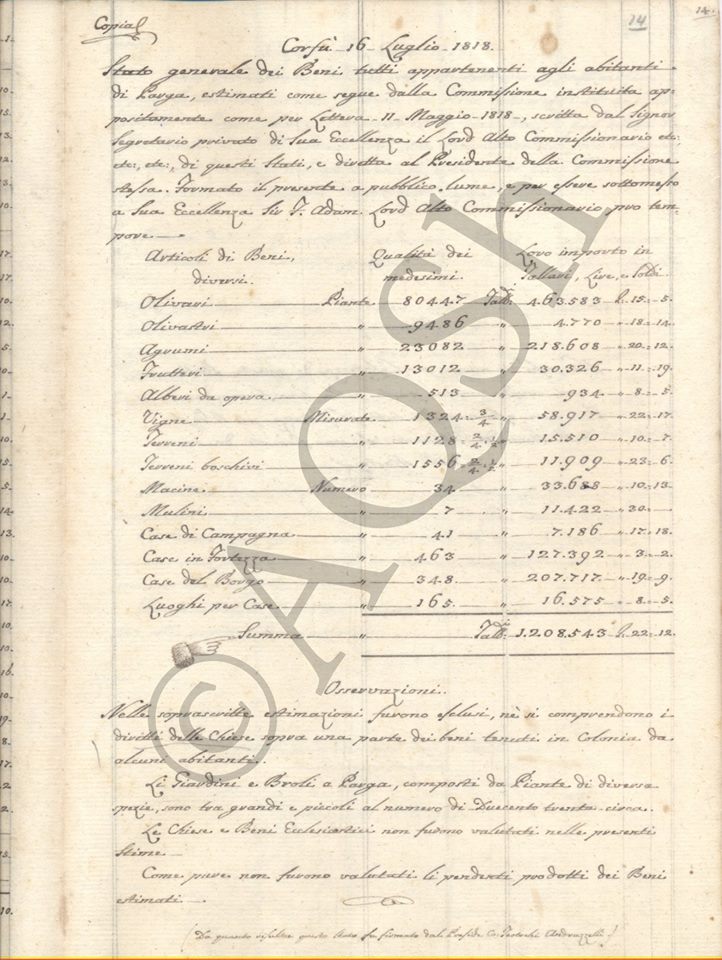 14.
Copia
14
Corfù 16 Luglio 1818.
Stato generale dei Beni tutti appartenenti agli abitanti
di Parga, estimati come segue dalla Commissione instituita ap-
positamente come per Lettera 11 Maggio 1818, scritta dal Signor
Segretario privato di Sua Eccellenza il Lord Alto Commissionario etc:
etc:, etc:, di questi Stati, e diretta al Presidente della Commissione
stessa. Formato il presente a pubblico lume, e per essere sottomesso
a Sua Eccellenza Sir F. Adam Lord Alto Commissionario pro tem-
pore
Articoli di Beni, Qualità dei Loro importo in
diversi. medesimi. Tallari, Lire, e Soldi
Olivari Piante 80447 Tall: 463583 L. 15 = 5.
Olivastri " 9486 " 4.770 " 18 = 14.
Agrumi " 23082 " 218.608 " 20 = 12.
Frutteri " 13012 " 30.326 " 11 = 19.
Alberi da opera " 513 " 934 " 8 = 5.
Vigne Misurate 1324 = 3/4 " 58.917 " 22 = 17.
Terreni " 1128 = 2/4 . 1/2 " 15.510 " 10 = 7.
Terreni boschivi " 1556 = 2/4 . 1/2 " 11.909 " 23 = 6.
Macine Numero 34 " 33.688 " 10 = 13
Mulini " 7 " 11.422 " 30
Case di Campagna " 41 " 7.186 " 17 = 18.
Case in Fortezza " 463 " 127.392 " 3 = 2.
Case del Borgo " 348 " 207.717 " 19 = 9.
Luoghi per Case " 165. " 16.575 " 8 = 5.
Summa " Tall: 1.208.543 L. 22 = 12.
Osservazioni.
Nelle soprascritte estimazioni furono esclusi, nè si comprendono i
diritti delle Chiese sopra una parte dei beni tenuti in Colonia da
alcuni abitanti.
Li Giardini e Broli a Parga, composti da Piante di diversa
spezie, sono tra grandi e piccoli al numero di Duecento trenta circa.
Le Chiese e Beni Eclesiastici non furono valutati nelle presenti
stime
Come pure non furono valutati li pendenti prodotti dei Beni
estimati
(Da quanto risulta questo Atto fu firmato dal Preside Co: Teotochi Andruzzelli)
© AOSH